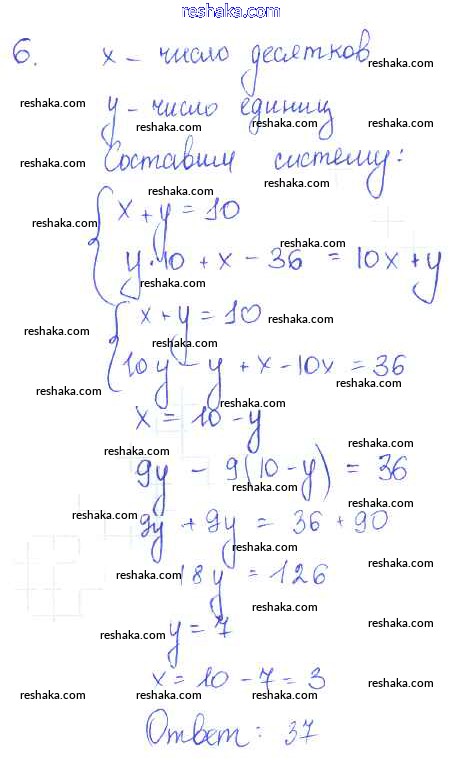 reshaka.com
6. x - число десятков
reshaka.com
reshaka.com y - число единиц
reshaka.com reshaka.com
Составим систему:
reshaka.com reshaka.com
x + y = 10
reshaka.com
reshaka.com
y·10 + x - 36 = 10x + y
reshaka.com
x + y = 10
reshaka.com reshaka.com
reshaka.com
10y - y + x - 10x = 36
reshaka.com reshaka.com
x = 10 - y
reshaka.com reshaka.com
9y - 9(10 - y) = 36
reshaka.com
9y + 9y = 36 + 90
reshaka.com reshaka.com
reshaka.com
18y = 126
reshaka.com reshaka.com
y = 7
reshaka.com reshaka.com
x = 10 - 7 = 3
reshaka.com reshaka.com reshaka.com
Ответ: 37
reshaka.com reshaka.com